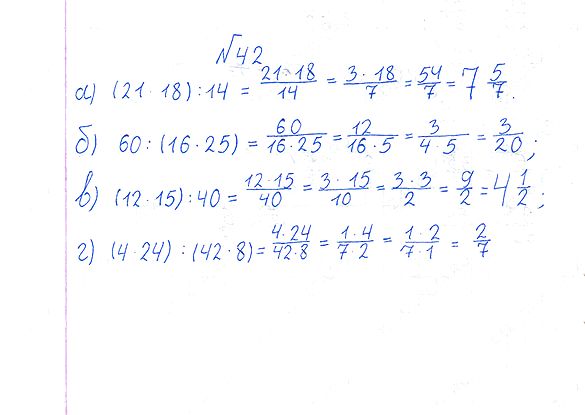 №42
а) (21·18):14 = 21·18/14 = 3·18/7 = 54/7 = 7 5/7.
б) 60:(16·25) = 60/16·25 = 12/16·5 = 3/4·5 = 3/20;
в) (12·15):40 = 12·15/40 = 3·15/10 = 3·3/2 = 9/2 = 4 1/2;
г) (4·24):(42·8) = 4·24/42·8 = 1·4/7·2 = 1·2/7·1 = 2/7